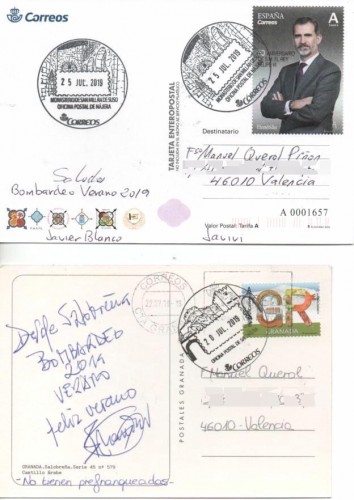 Correos
ESPAÑA
Correos
A
25 JUL. 2019
MONASTERIO DE SAN MILLAN DE SUSO
OFICINA POSTAL DE NÁJERA
CORREOS
25 JUL. 2019
MONASTERIO DE SAN MILLAN DE SUSO
OFICINA POSTAL DE NÁJERA
CORREOS
TARJETA ENTEROPOSTAL
Destinatario
Manuel Querol Piñon
46010 Valencia
Saludos
Bombardeo Verano 2019
Valor Postal: Tarifa A
A 0001657
Javier Blanco
CORREOS
GR
GRANADA
20 JUL. 2019
OFICINA POSTAL DE
CORREOS
Desde Salobreña
BOMBARDEO
2019
VERANO
feliz verano
POSTALES GRANADA
Manuel Querol
46010-Valencia
GRANADA.Salobreña.Serie 45 nº 570
Castillo Arabe
-No tienen prefranqueados-